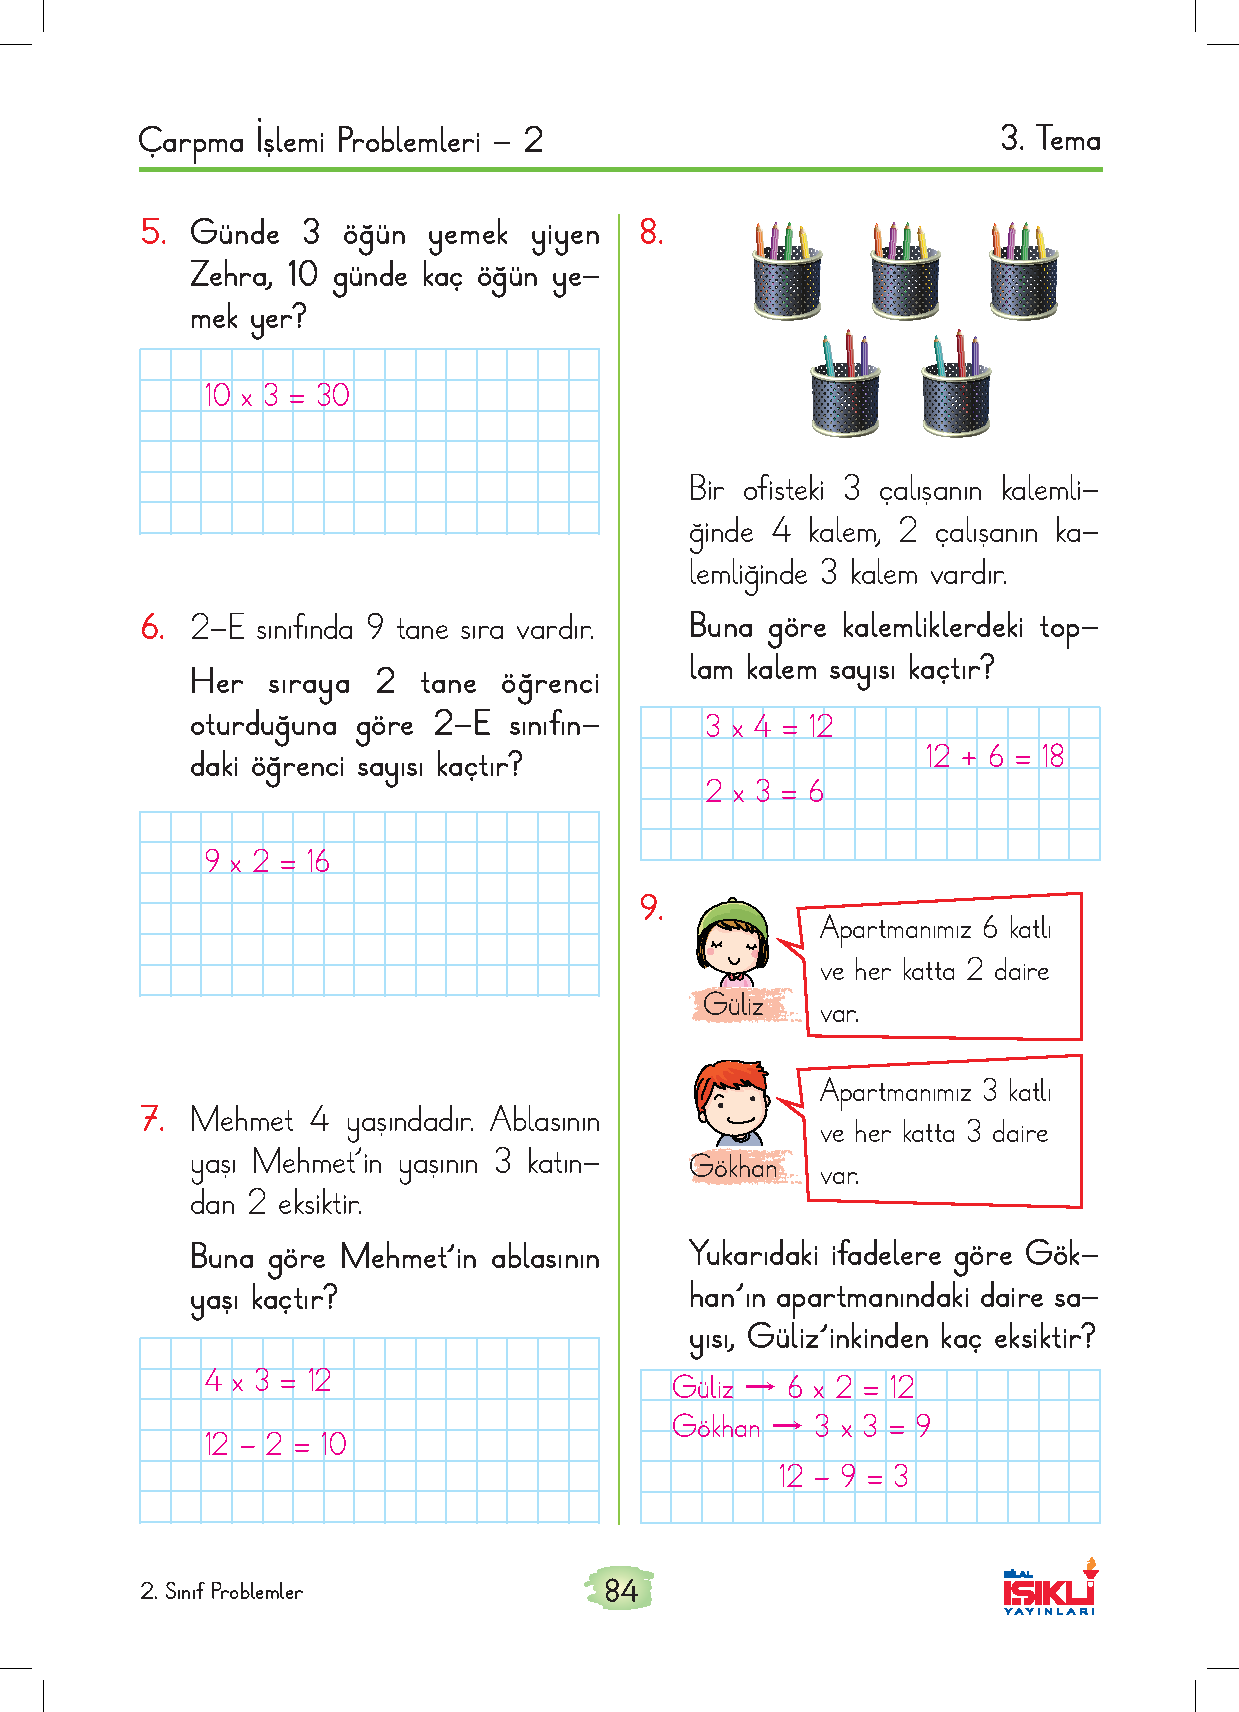 Çarpma İşlemi Problemleri - 2
3. Tema
5. Günde 3 öğün yemek yiyen
Zehra, 10 günde kaç öğün ye-
mek yer?
10 x 3 = 30
6. 2-E sınıfında 9 tane sıra vardır.
Her sıraya 2 tane öğrenci
oturduğuna göre 2-E sınıfın-
daki öğrenci sayısı kaçtır?
9 x 2 = 16
7. Mehmet 4 yaşındadır. Ablasının
yaşı Mehmet'in yaşının 3 katın-
dan 2 eksiktir.
Buna göre Mehmet'in ablasının
yaşı kaçtır?
4 x 3 = 12
12 - 2 = 10
8.
Bir ofisteki 3 çalışanın kalemli-
ğinde 4 kalem, 2 çalışanın ka-
lemliğinde 3 kalem vardır.
Buna göre kalemliklerdeki top-
lam kalem sayısı kaçtır?
3 x 4 = 12
12 + 6 = 18
2 x 3 = 6
9.
Apartmanımız 6 katlı
ve her katta 2 daire
var.
Güliz
Apartmanımız 3 katlı
ve her katta 3 daire
var.
Gökhan
Yukarıdaki ifadelere göre Gök-
han'ın apartmanındaki daire sa-
yısı, Güliz'inkinden kaç eksiktir?
Güliz → 6 x 2 = 12
Gökhan → 3 x 3 = 9
12 - 9 = 3
2. Sınıf Problemler
84
BİLAL
IŞIKLI
YAYINLARI